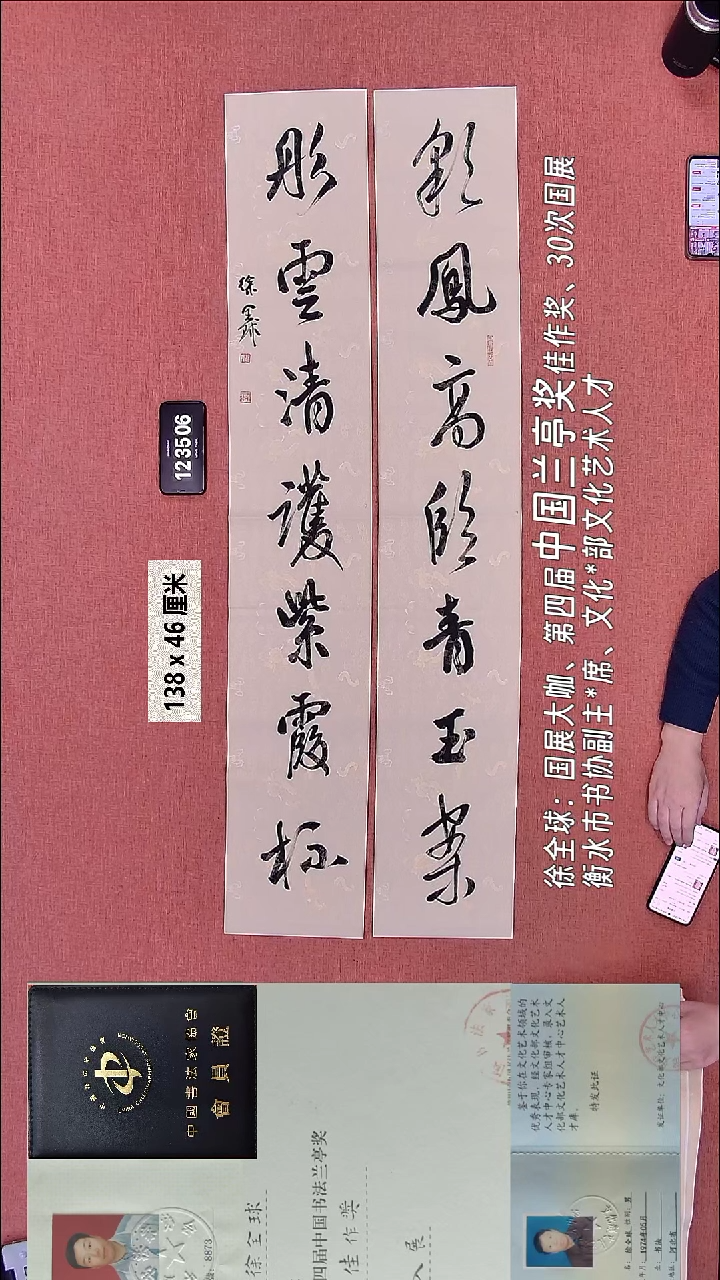 彩鳳高臨青玉案
彤雲清護紫霞杯
徐全球
123506
138 x 46 厘米
徐全球：国展大咖、第四届中国兰亭奖佳作奖、30次国展
衡水市书协副主*席、文化*部文化艺术人才
中國書法家協會
會員證
8873
徐全球
四届中国书法兰亭奖
佳作奖
入展
鉴于你在文化艺术领域的
优秀表现，经文化部文化艺术
人才中心专家组审核，录入文
化部文化艺术人才中心艺术人
才库。
特发此证
发证单位：文化部文化艺术人才中心